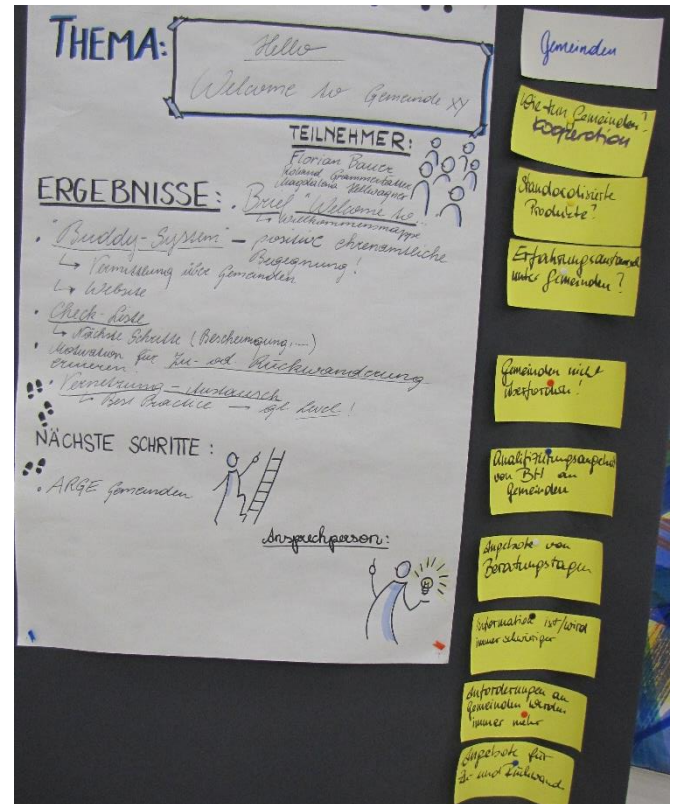 THEMA:
Hello
Welcome to Gemeinde XY
TEILNEHMER:
Florian Bauer
Roland
Magdalena Hellwagner
ERGEBNISSE:
• Brief "Welcome to...
↳ Willkommensmappe
• "Buddy-System" – positive ehrenamtliche
Begegnung!
↳ Vermittlung über Gemeinden
↳ Website
• Check-Liste
↳ Nächste Schritte (Bescheinigung,...)
• Motivation für Zu- od Rückwanderung
eruieren!
• Vernetzung – Austausch
↳ Best Practice → Level!
NÄCHSTE SCHRITTE:
• ARGE Gemeinden
Ansprechperson:
Gemeinden
Wie tun Gemeinden?
Kooperation
Standardisierte
Produkte?
Erfahrungsaustausch
unter Gemeinden?
Gemeinden nicht
überfordern!
Qualifizierungsangebot
von BH an
Gemeinden
Angebote von
Beratungstagen
Information ist/wird
immer schwieriger
Anforderungen an
Gemeinden werden
immer mehr
Angebote für
Zu- und Rückwand.